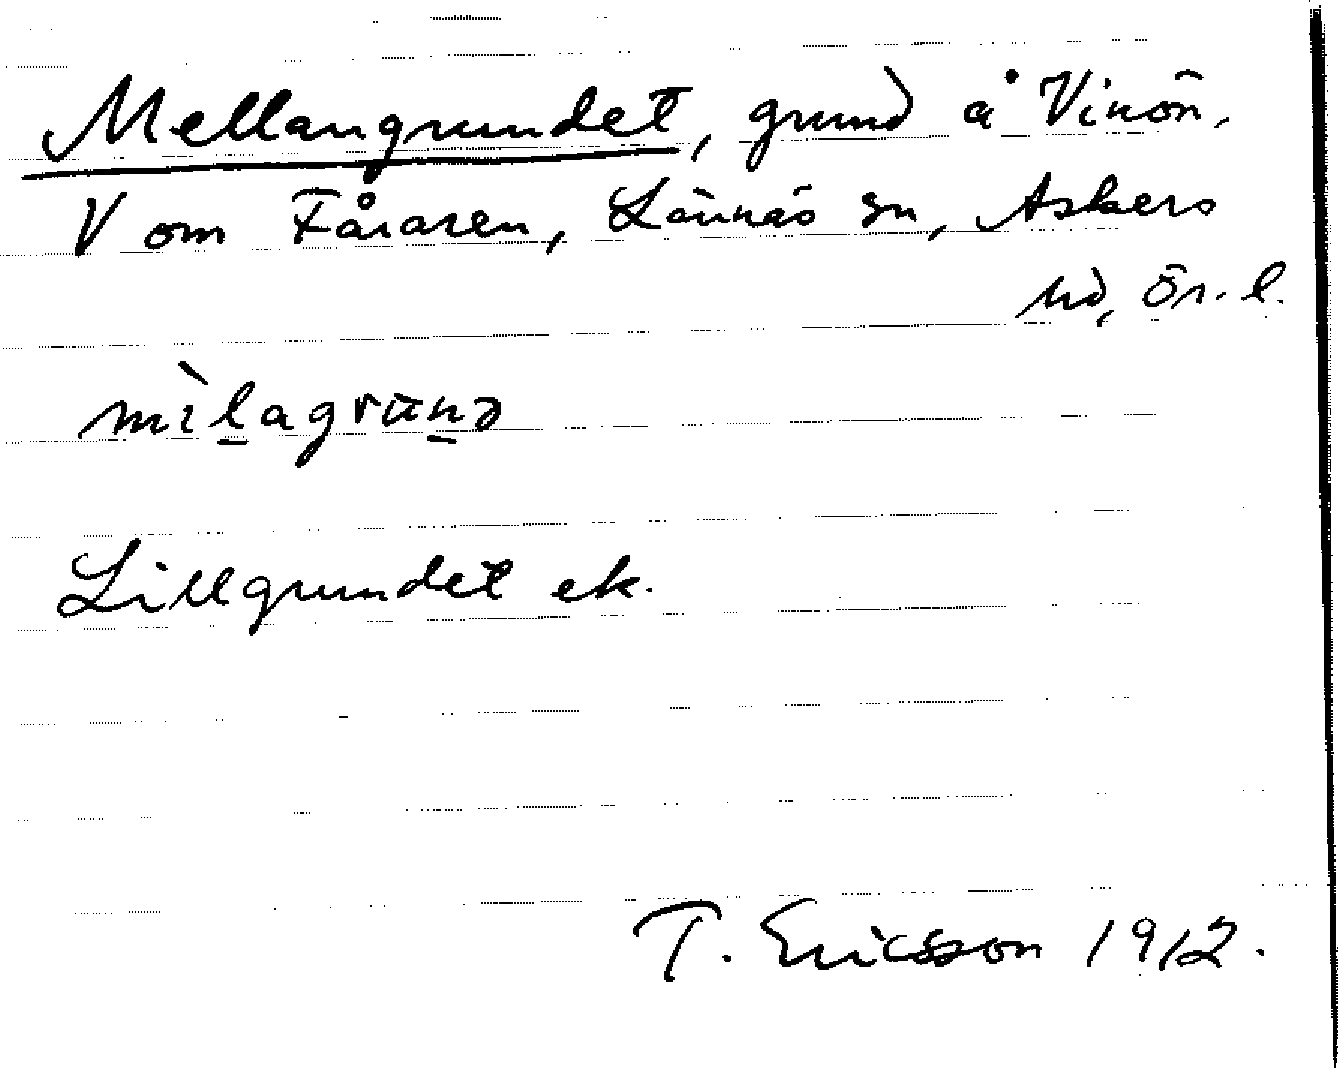 Mellangrundet, grund å Vinön,
V om Fåraren, Lännäs sn, Askers
hd, Ör. l.
mìlagrund
Lillgrundet ek.
T. Ericsson 1912.